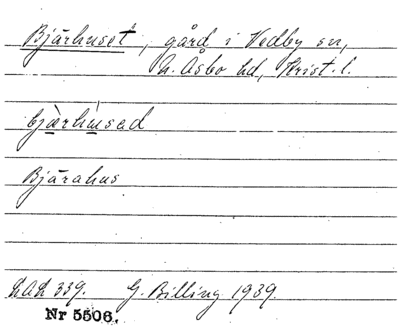 Bjärhuset, gård i Vedby sn,
N. Åsbo hd, Krist. l.
bjärhúsad
Bjärahus
LAL 339. G. Billing 1939.
Nr 5506.